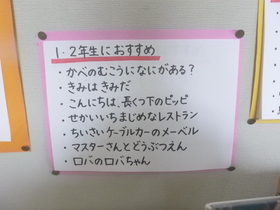 1・2年生におすすめ
・かべのむこうになにがある?
・きみはきみだ
・こんにちは、長くつ下のピッピ
・せかいいちまじめなレストラン
・ちいさいケーブルカーのメーベル
・マスターさんとどうぶつえん
・ロバのロバちゃん